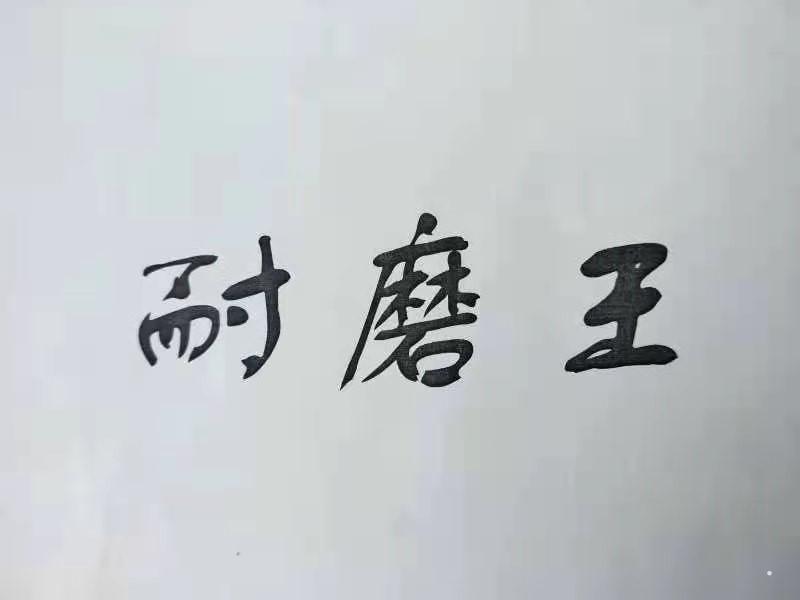 耐磨王